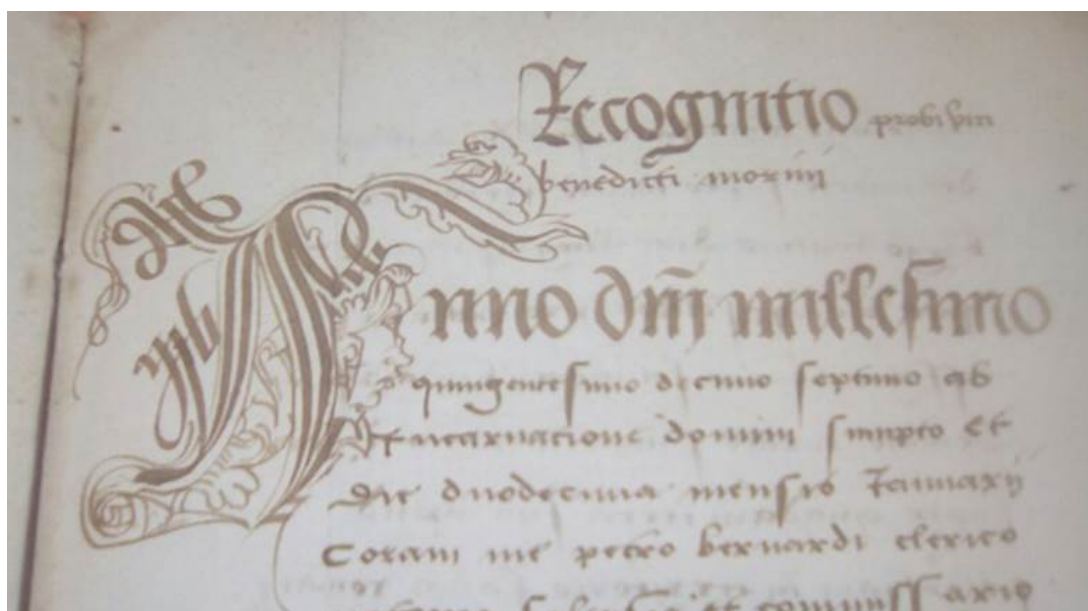 Recognitio probi viri
benedicti morini
Anno dñi millesimo
quingentesimo decimo septimo ab
Incarnacione domini sumpto et
die duodecima mensis Januarii
Coram me petro bernardi clerico
et commissario